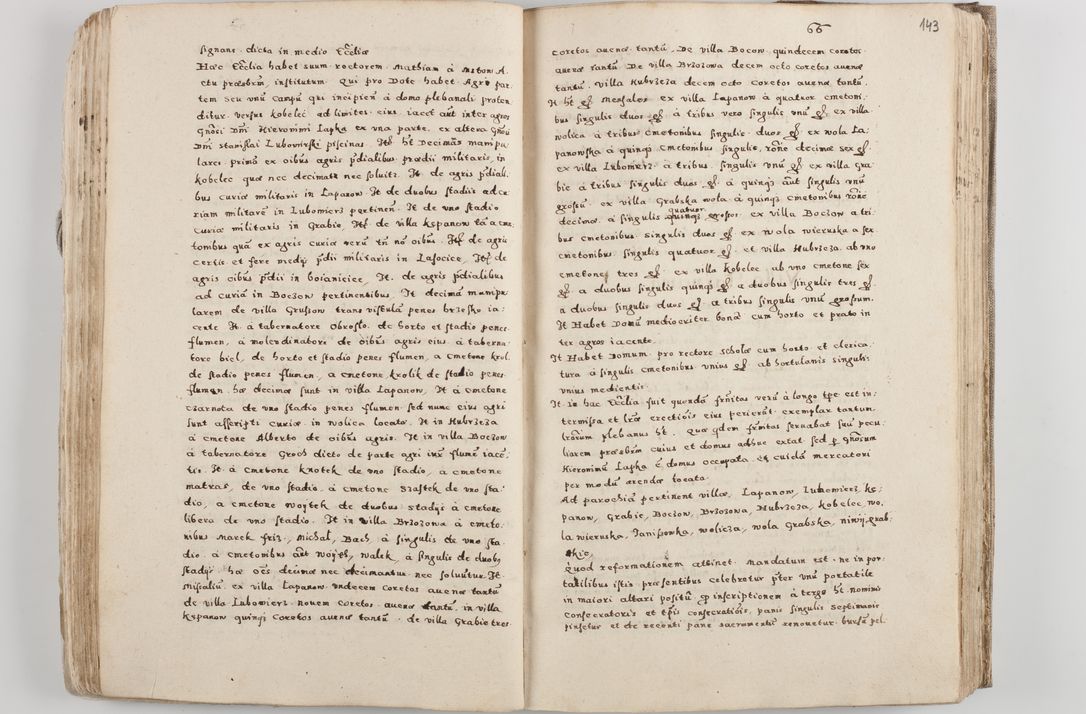 signans. dicta in medio Eccliæ
Hæc Ecclia habet suum rectorem. Mathiam à
ctu præsbrm, institutum. Qui pro Dote habet. Agrū par
tem seu vnū campū qui incipien à domo plebanali proten
ditur versus Kobelec ad limites eius iacet aūt inter agros
Gnōsi Dnī Hieronimi Lapka ex vna parte. ex altera Gnōsi
Dnī stanislai Lubomirski piscinas. Itē ht Decimās manipu
lares primō ex oibus agris pdialibus prædii militaris, in
kobelec quæ nec decimatr nec soluitr. It de agris pdiali.
bus curiæ militaris in Lapanow. It de duobus stadiis ad cu
riam militarē in Lubomierz pertinen. It de vno stadio
curiæ militaris in Grabie, Itē de villa Kępanow tā a cme
tonibus quā ex agris curiæ verū tn nō oibus. Itē de agris
certis et fere medii pdii militaris in Lasocice. Itē de
agris oibus pdii in boianiciec, It. de agris pdialibus
ad curiā in Boczow pertinentibus. It decimā manipu
larem de villa Gruszow trans vistulā penes brzesko ia:
cente It à tabernatore Obroslo. de horto et stadio penes
flumen, a molendinatore de oibus agris eius à taberna
tore biel, de horto et stadio penes flumen, a cmetone krol
de stadio penes flumen, a cmetone krolik de stadio penes
flumen. hæ decimæ sunt in villa Lapanow, It à cmetone
czarnota de vno stadio penes flumen sed nunc eius agri
sunt asscripti curiæ in wolica locatæ. It in Hubrzeza
à cmetone Alberto de oibus agris. It in villa Boczow
à tabernatore Groch dicto de parte agri iux flumē iacē:
tis. It à cmetone knotek de vno stadio, a cmetone
matras, de vno stadio. à cmetone szastek de vno sta
dio, a cmetone woytek de duobus stadys à cmetone
libera de vno stadio. It in villa Brzozowa à cmeto:
nibus Marek friz, Michal, Bach, à singulis de vno sta
dio à cmetonibus aūt woytek, walek, à singulis de duobus
stadys hæ oēs decimæ nec decimantur nec soluūtur. It
missaliū. ex villa Lapanow vndecem coretos auenæ tantū
de villa Lubomierz nouem coretos auenæ tantū. in villa
Kępanow quinqu coretos auenæ tantū. de villa Grabie tres

66 143
coretos auenæ tantū, De villa Bocow quindecem coretos
auenæ tantū. De villa Brzozowa decem octo coretos auenæ
tantū. villa Hubrzeza decem octo coretos auenæ tantū.
It ht missales ex villa Lapanow à quatuor cmetoni.
bus singulis duos à tribus vero singulis vnū ex villa
wolica à tribus cmetonibus singulis duos ex wola La:
panowska à quinqu cmetonibus singulis, rōne decimæ sex
ex villa Lubomierz à tribus singulis vnū ex villa Gra
bie à tribus singulis duos à quinqu aūt singulis vnū
grossū. ex villa Grabska wola à quinqu cmetonibus rōne
decimæ. à singulis quatuor quinqu grossos. ex villa Boczow a tri
bus cmetonibus singulis duos ex wola wieruska a sex
cmetonibus singulis quatuor et villa Hubrzeza ab vno
cmetone tres ex villa kobelec ab vno cmetone sex
a duobus singulis quinqu a duobus singulis tres
a duobus singulis duos a tribus singulis vnū grossum.
It Habet Domū mediocriter bonā cum horto et prato in
ter agros iacente.
It Habet Domum pro rectore scholæ cum horto et clerica
tura à singulis cmetonibus vnius ab hortulanis singulis
vnius medientis.
It in hac Ecclia fuit quondā frnitas verū à longo tpe est in:
termissa et lræ erectiois eius perierūt. exemplar tantum
lrarum plebanus ht. Quæ qdem frnitas seruabat suū pecu
liarem præsbrm cuius et domus adhuc extat sed p Gnosum
Hieronimū Lapka ē domus occupata et cuidā mercatori
per modū arendæ locata.
Ad parochiā pertinent villæ, Lapanow, Lubomirez, Kę:
panow, Grabie, Boczow, Brzozowa, Hubrzeza, kobelec, wo:
la wieruska, Janipowka, wolicza, wola Grabska, niwy grab
skie,
Quod reformationem attinet. Mandatum est. ne in por
tatilibus istis præsentibus celebretur pter vnū portatile
in maiori altari positū inscriptionem à tergo ht nominis
consecratoris et tpis consecratiōis, panis singulis septimanis
pinsetur et de recenti pane sacramentū renouetur bursa pel